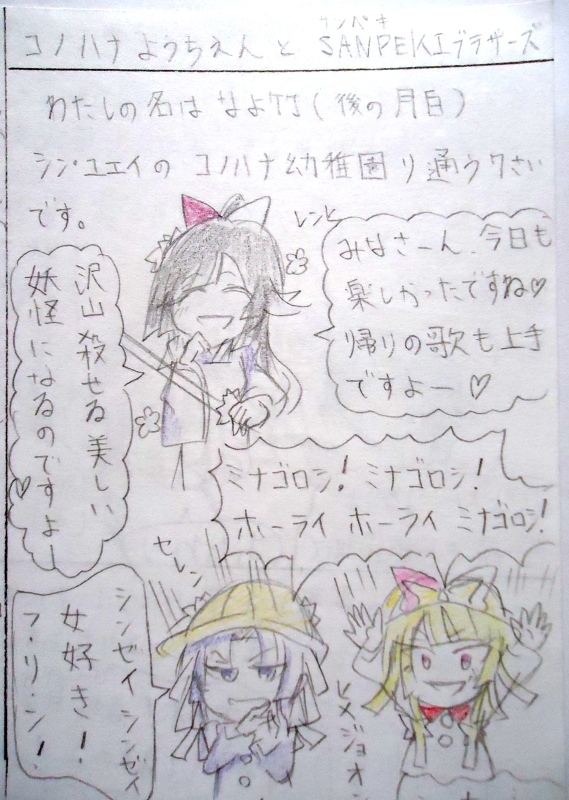 コノハナようちえんと SANPEKIブラザーズ
サンパキ
わたしの名は なよ竹(後の月白)
シン・ユエイの コノハナ幼稚園り通う9さい
です。
レンヒ
みなさーん、今日も
楽しかったですね♡
帰りの歌も上手
ですよー♡
沢山殺せる美しい
妖怪になるのですよー♡
ミナゴロシ! ミナゴロシ!
ホーライ ホーライ ミナゴロシ!
セレン
シンゼイ シンゼイ
女好き!
フ・リ・ン!
ヒメジョオン